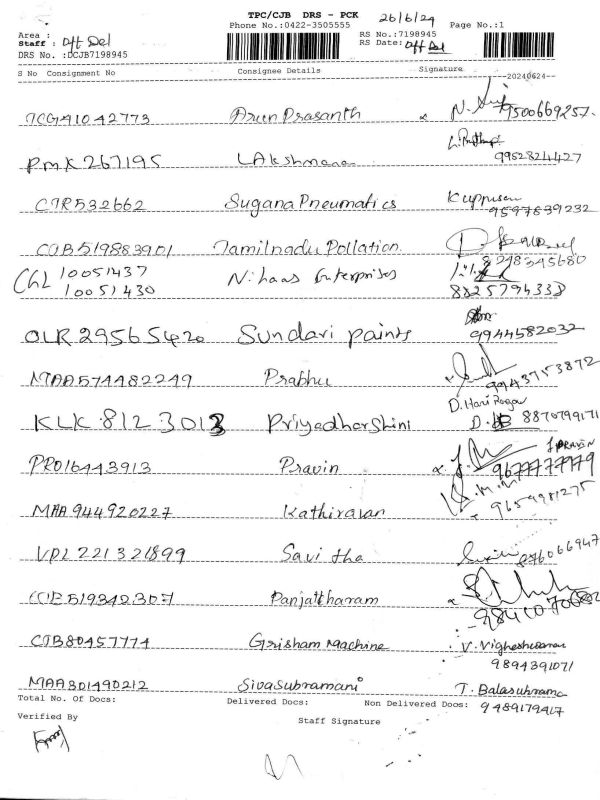 TPC/CJB DRS - PCK 26/6/24
Phone No.:0422-3505555 Page No.:1
Area :
Staff : Off Del
DRS No. :DCJB7198945
RS No.:7198945
RS Date: Off Del
S No Consignment No Consignee Details Signature
20240624
TCG41042773 Arun Prasanth 9500669257
PMK267195 LAkshmana 9952824427
CTR532662 Sugana Pneumatics Kuppusam 9597839232
COB519883901 Tamilnadu Pollation 8248345680
CHL 10051437 Nihaas Enterprises
10051430 8825794333
OLR29565420 Sundari paints 9944582032
MAA574482249 Prabhu 9943753872
D. Hari Ragav
KLK 8123013 Priyadharshini 8870799171
PRO16443913 Pravin J. PRAVIN 9677777979
MAA944920227 Kathiravan 9659981275
VPL221321899 Savitha 876066947
COB519342307 Panjatcharam
CJB80457774 Grisham Machine V. Vigheshwaran
9894391071
MAA301490212 Sivasubramani T. Balasubrama
Total No. Of Docs: Delivered Docs: Non Delivered Docs: 9489179417
Verified By Staff Signature